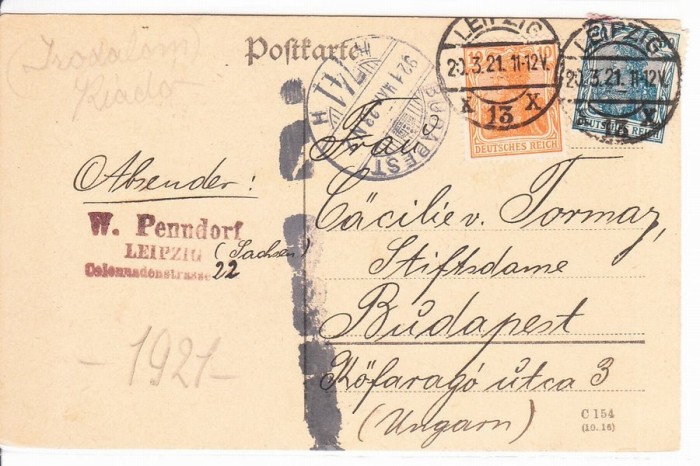 (Irodalom)
Kiadó
Postkarte
LEIPZIG
20.3.21. 11-12V.
X 13 X
LEIPZIG
20.3.21. 11-12V.
X 13 X
10 10
DEUTSCHES REICH
DEUTSCHES REICH
BUDAPEST
921
41
H
Frau
Absender:
Cäcilie v. Tormay,
W. Penndorf
LEIPZIG (Sachsen)
Colonnadenstrasse 22
Stiftsdame
Budapest
Kőfaragó utca 3
(Ungarn)
-1921-
C 154
(10.16)